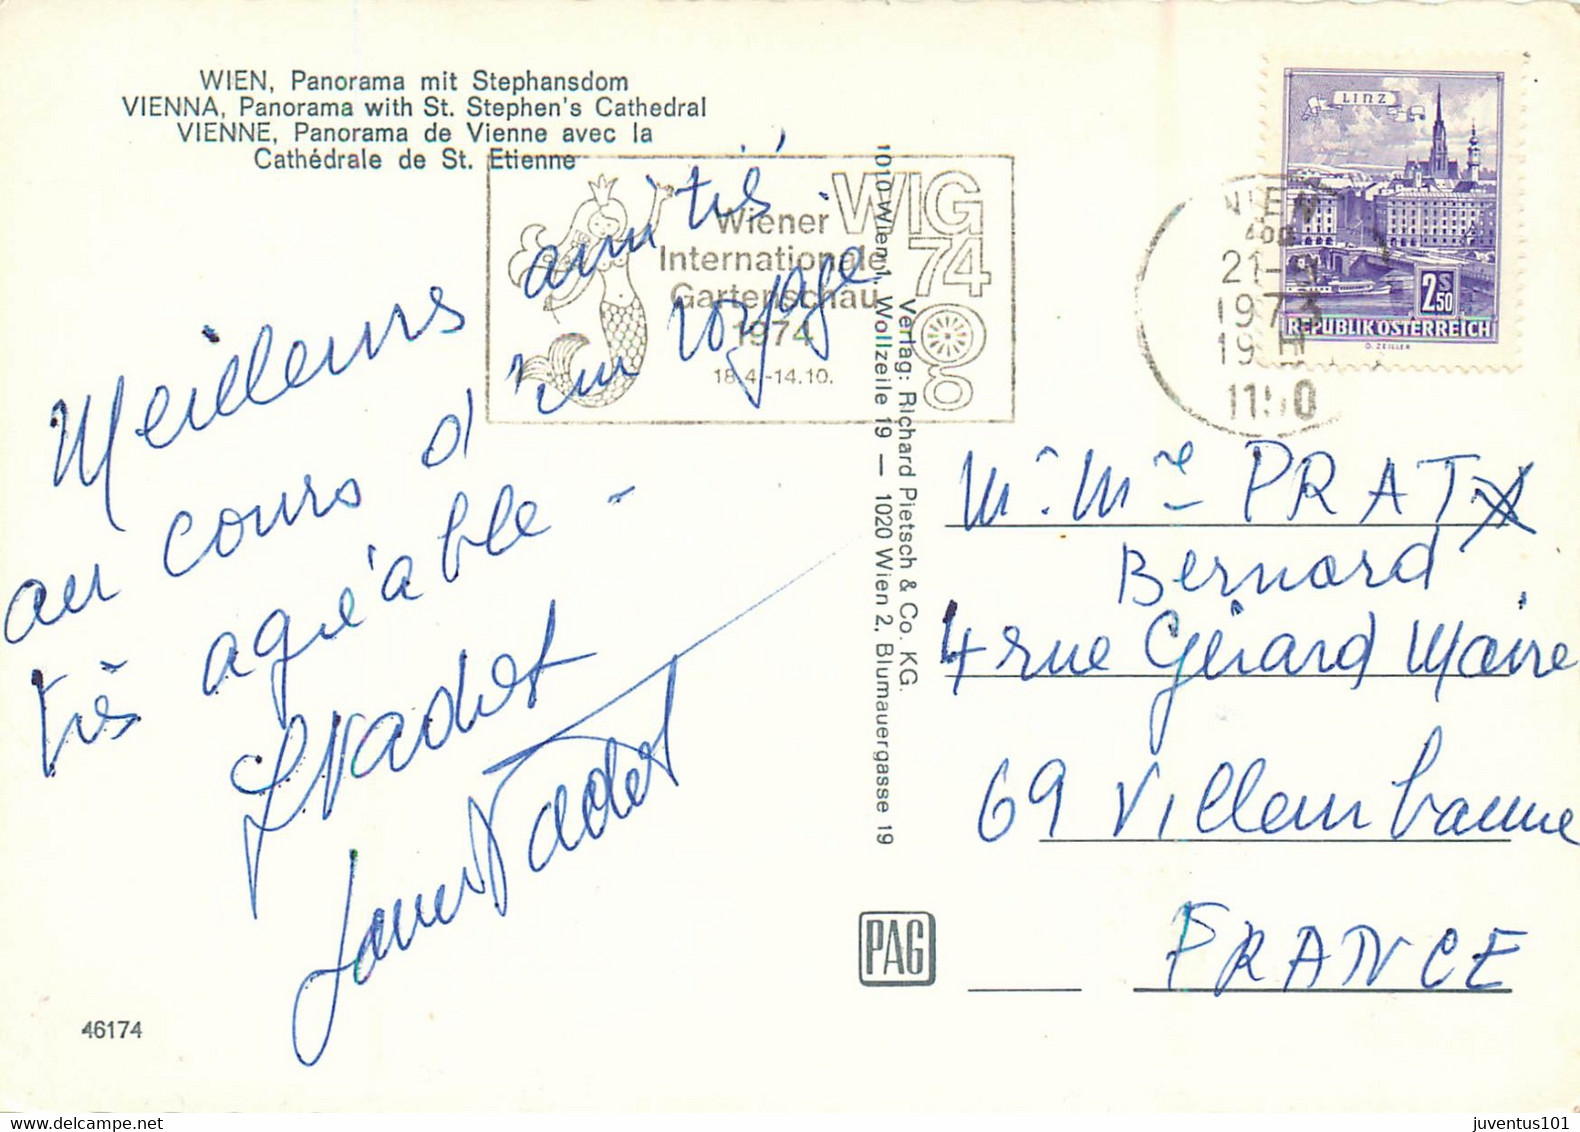 WIEN, Panorama mit Stephansdom
VIENNA, Panorama with St. Stephen's Cathedral
VIENNE, Panorama de Vienne avec la
Cathédrale de St. Etienne
Wiener
Internationale
Gartenschau
1974
18.4.-14.10.
WIG
74
LINZ
2S50
REPUBLIK ÖSTERREICH
O. ZEILLER
WIEN
21
1973
19
1150
Meilleurs amitiés
au cours d'un voyage
très agréable -
Nadet
Verlag: Richard Pietsch & Co. KG.
1010 Wien 1, Wollzeile 19 — 1020 Wien 2, Blumauergasse 19
M. Mme PRAT
Bernard
4 rue Gérard Maire
69 Villeurbanne
FRANCE
PAG
46174
juventus101